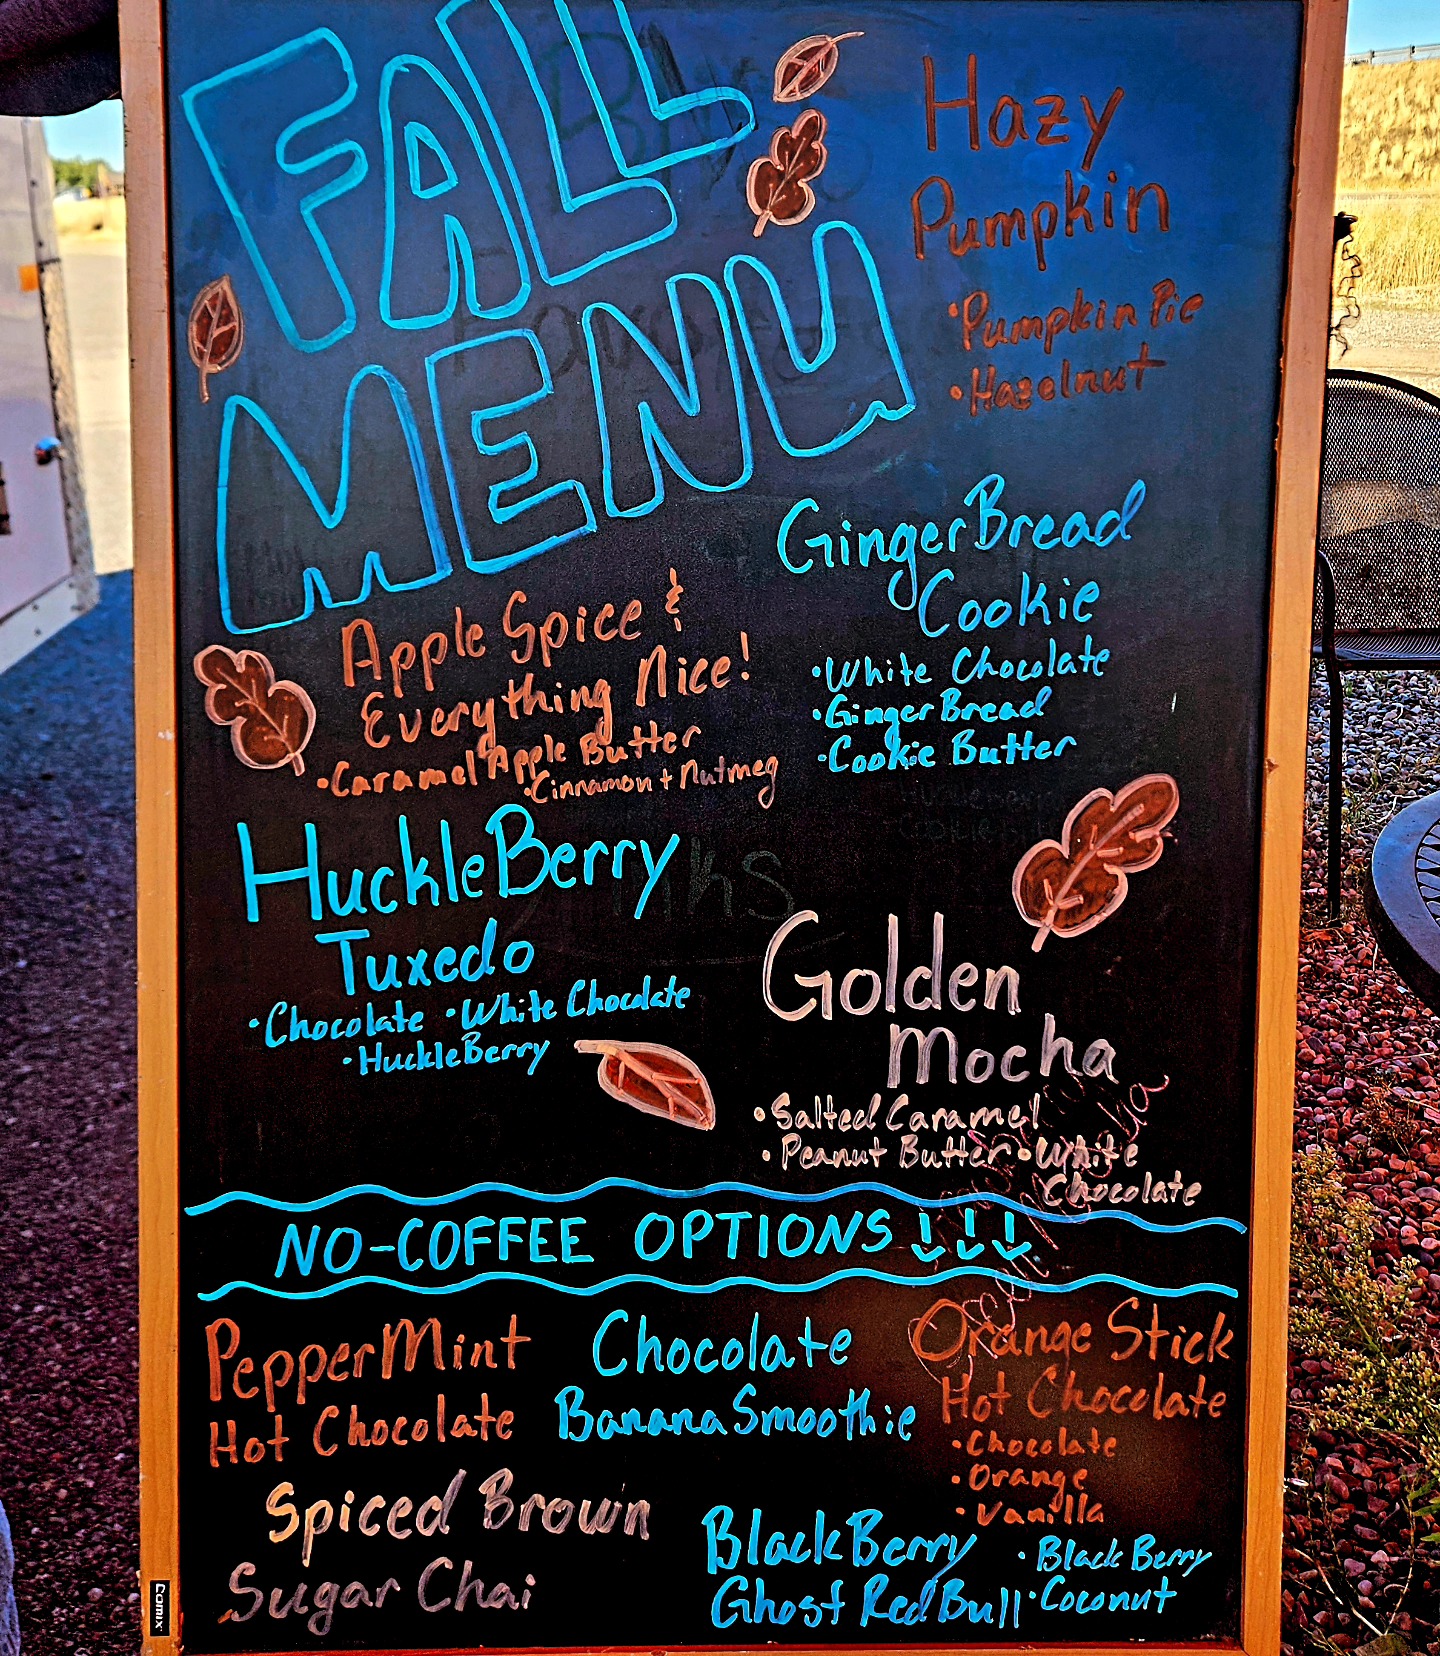 FALL
MENU
Hazy
Pumpkin
•Pumpkin Pie
•Hazelnut
GingerBread
Cookie
•White Chocolate
•GingerBread
•Cookie Butter
Apple Spice &
Everything Nice!
•Caramel Apple Butter
•Cinnamon + Nutmeg
HuckleBerry
Tuxedo
•Chocolate •White Chocolate
•HuckleBerry
Golden
Mocha
•Salted Caramel
•Peanut Butter •White
Chocolate
NO-COFFEE OPTIONS ↓↓↓
PepperMint
Hot Chocolate
Chocolate
Banana Smoothie
Orange Stick
Hot Chocolate
•Chocolate
•Orange
•Vanilla
Spiced Brown
Sugar Chai
BlackBerry
Ghost RedBull
•BlackBerry
•Coconut
Comix